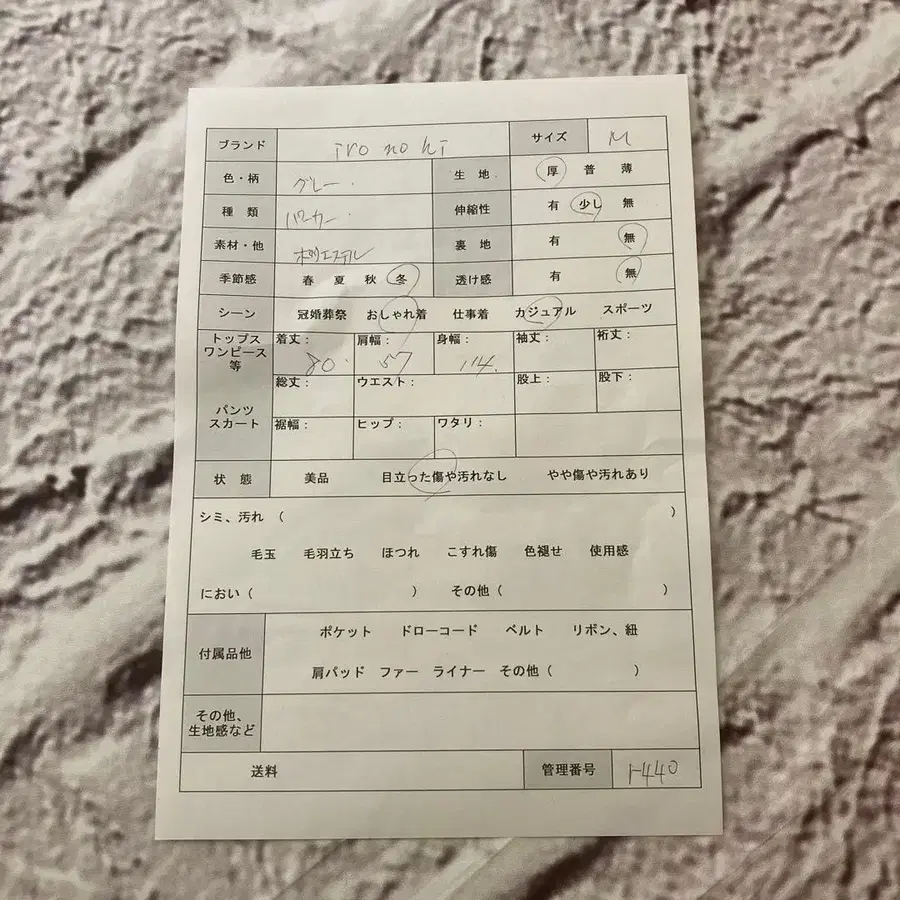 ブランド iro no hi サイズ M
色・柄 グレー 生地 厚 普 薄
種類 パーカー 伸縮性 有 少し 無
素材・他 ポリエステル 裏地 有 無
季節感 春 夏 秋 冬 透け感 有 無
シーン 冠婚葬祭 おしゃれ着 仕事着 カジュアル スポーツ
トップス
ワンピース
等
着丈： 肩幅： 身幅： 袖丈： 裄丈：
80 57 114
パンツ
スカート
総丈： ウエスト： 股上： 股下：
裾幅： ヒップ： ワタリ：
状態 美品 目立った傷や汚れなし やや傷や汚れあり
シミ、汚れ （ ）
毛玉 毛羽立ち ほつれ こすれ傷 色褪せ 使用感
におい（ ） その他（ ）
付属品他 ポケット ドローコード ベルト リボン、紐
肩パッド ファー ライナー その他（ ）
その他、
生地感など
送料 管理番号 1-440